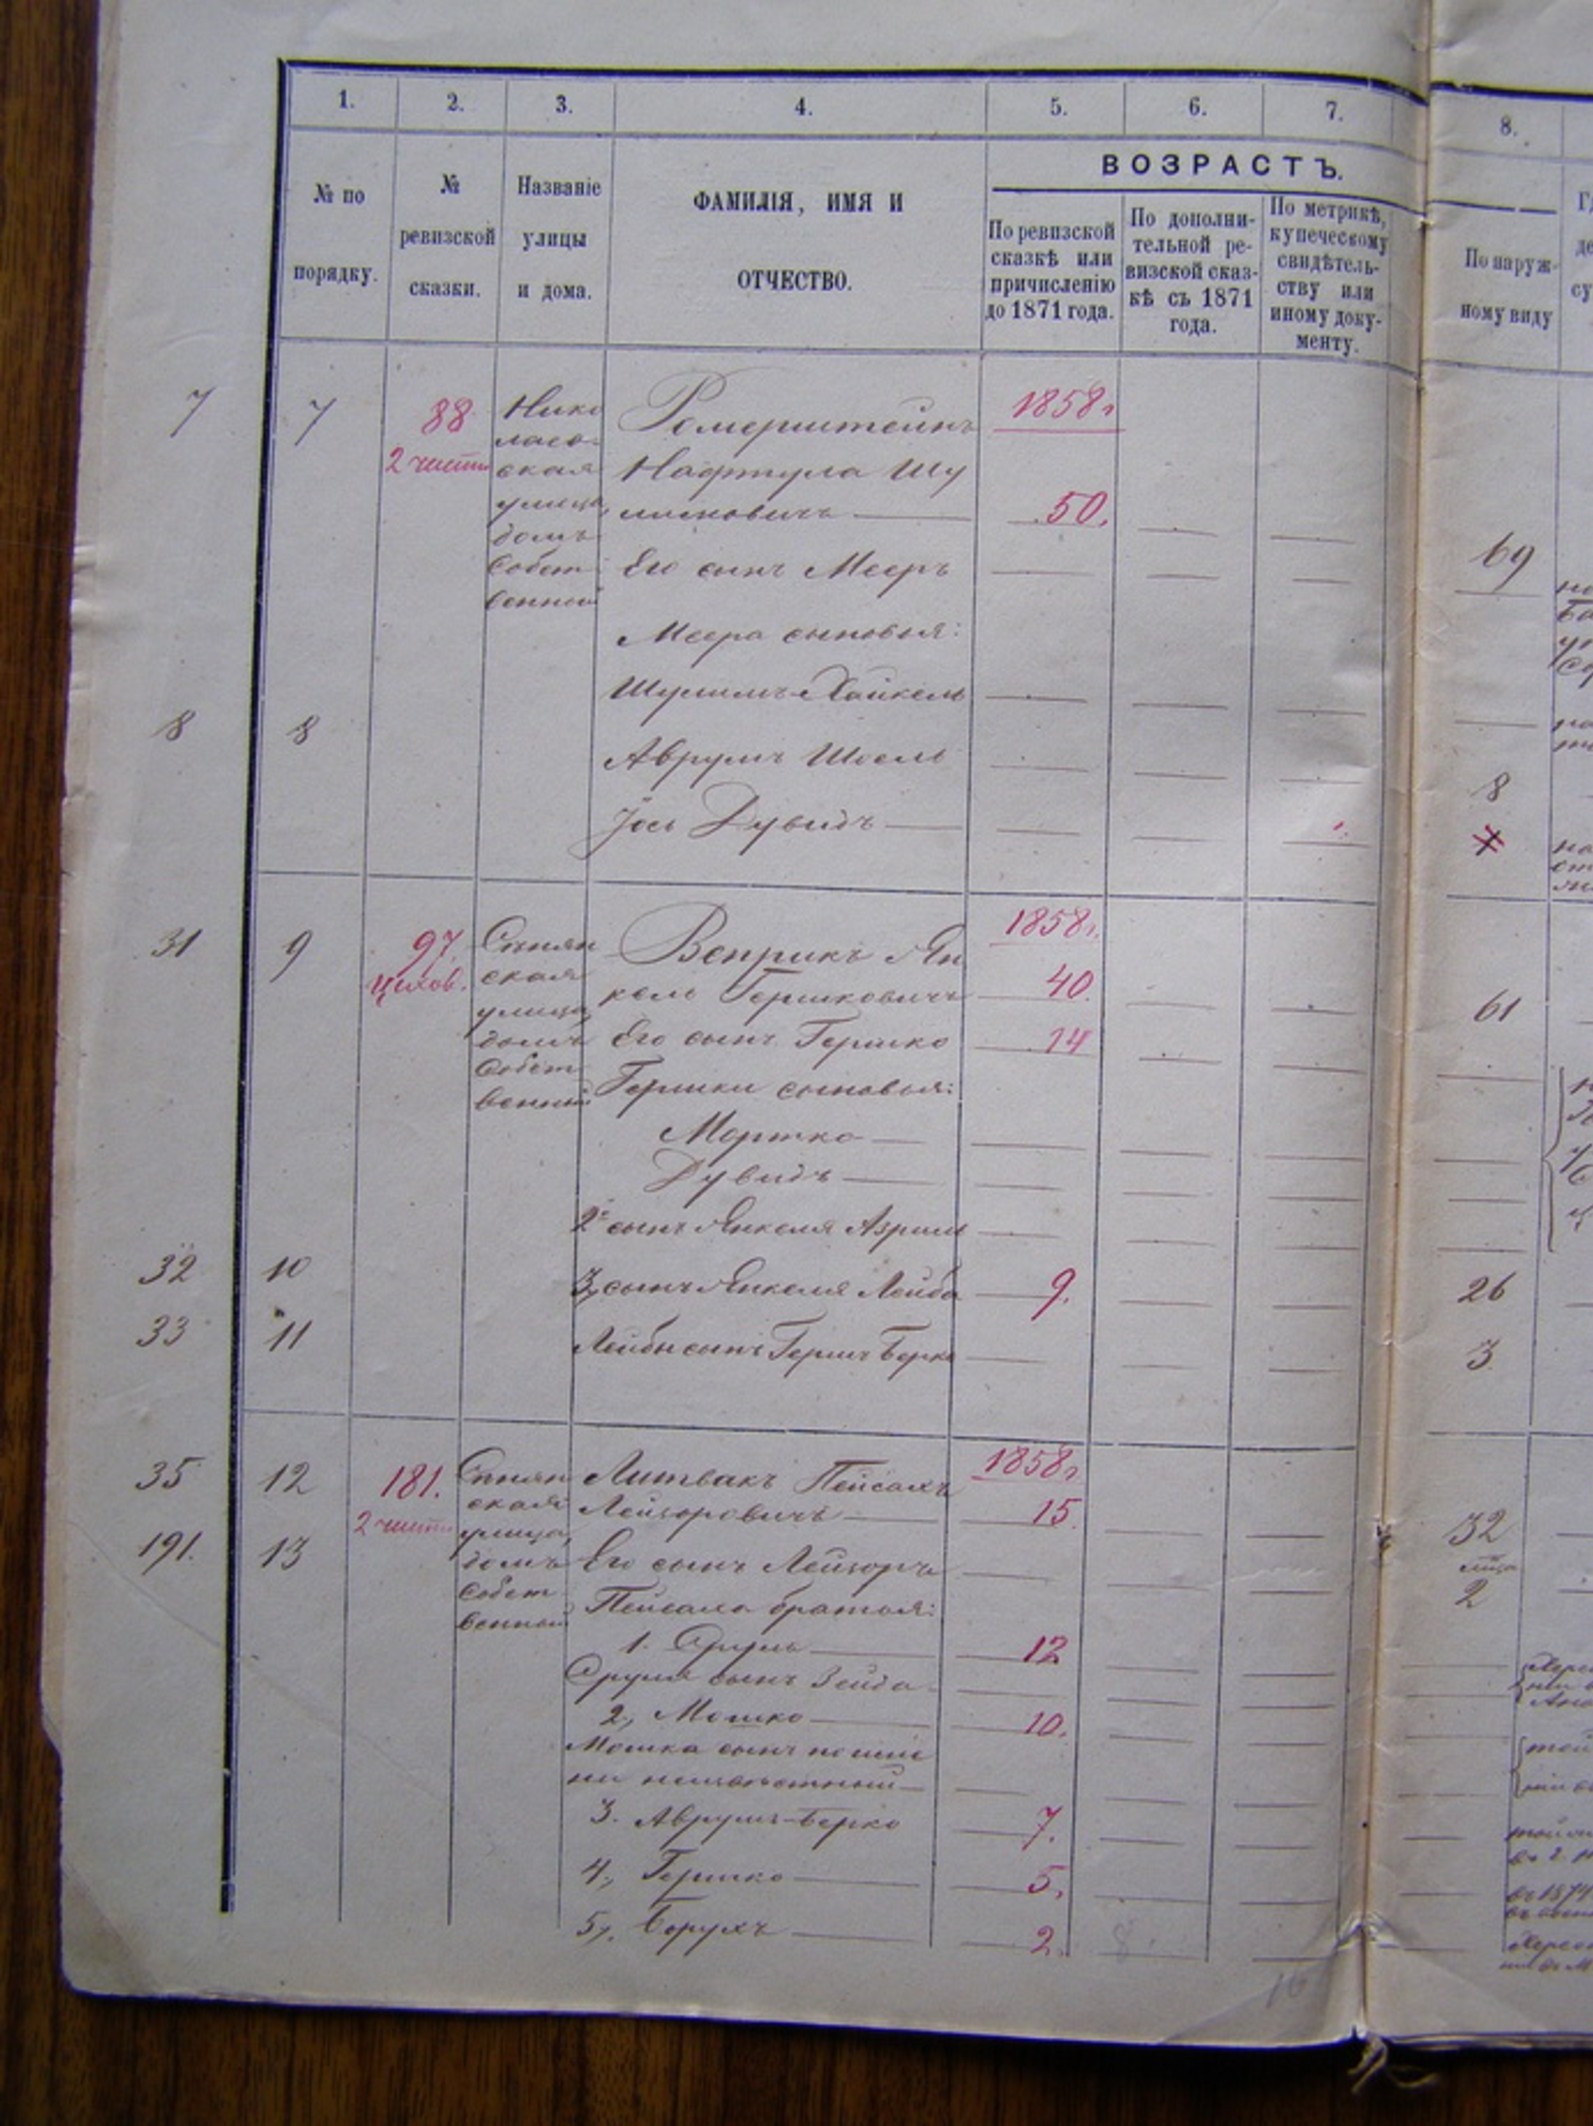 1. 2. 3. 4. 5. 6. 7. 8.
№ по порядку.
№ ревизской сказки.
Названіе улицы и дома.
ФАМИЛІЯ, ИМЯ И
ОТЧЕСТВО.
ВОЗРАСТЪ.
По ревизской
сказкѣ или
причисленію
до 1871 года.
По дополни-
тельной ре-
визской сказ-
кѣ съ 1871
года.
По метрикѣ,
купеческому
свидѣтель-
ству или
иному доку-
менту.
По наруж-
ному виду
7 7 88
2 части
Нико
лаев-
ская
улица,
домъ
собст-
венный
Ромерштейнъ 1858 г
Нафтула Шу
лимовичъ 50.
Его сынъ Мееръ 69
Меера сыновья:
Шулимъ-Хайкель
8 8 Аврумъ Шоель 8
Іось Дувидъ 7
31 9 97.
Цехов.
ская
улица,
домъ
собст-
венный
Веприкъ Ян 1858 г.
кель Гершковичъ 40. 61
Его сынъ Гершко 14
Гершки сыновья:
Мортко
Дувидъ
2й сынъ Янкеля Азриль
32 10 3, сынъ Янкеля Лейба 9. 26
33 11 Лейбы сынъ Гершъ Берко 3
35 12 181.
2 части
ская
улица,
домъ
собст-
венный
Литвакъ Пейсахъ 1858 г
Лейзоровичъ 15. 32
191. 13 Его сынъ Лейзоръ 2
Пейсаха братья:
1. Сруль 12
Сруля сынъ Зейда
2, Мошко 10.
Мошка сынъ по име
ни неизвѣстный
3. Аврумъ-Берко 7.
4, Гершко 5,
5, Борухъ 2.
16